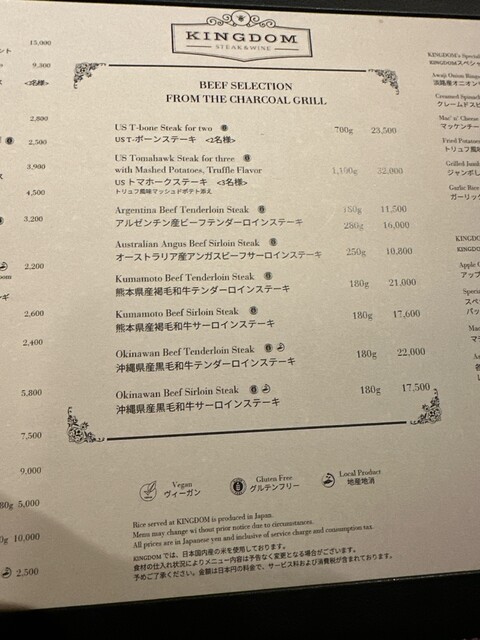 KINGDOM
STEAK & WINE
BEEF SELECTION
FROM THE CHARCOAL GRILL
US T-bone Steak for two 700g 23,500
US T-ボーンステーキ <2名様>
US Tomahawk Steak for three
with Mashed Potatoes, Truffle Flavor 1,100g 32,000
US トマホークステーキ <3名様>
トリュフ風味マッシュドポテト添え
Argentina Beef Tenderloin Steak 11,500
アルゼンチン産ビーフテンダーロインステーキ 280g 16,000
Australian Angus Beef Sirloin Steak
オーストラリア産アンガスビーフサーロインステーキ 250g 10,800
Kumamoto Beef Tenderloin Steak 180g 21,000
熊本県産褐毛和牛テンダーロインステーキ
Kumamoto Beef Sirloin Steak 180g 17,600
熊本県産褐毛和牛サーロインステーキ
Okinawan Beef Tenderloin Steak 180g 22,000
沖縄県産黒毛和牛テンダーロインステーキ
Okinawan Beef Sirloin Steak 180g 17,500
沖縄県産黒毛和牛サーロインステーキ
Vegan
ヴィーガン
Gluten Free
グルテンフリー
Local Product
地産地消
Rice served at KINGDOM is produced in Japan.
Menu may change wi hout prior notice due to circumstances.
All prices are in Japanese yen and inclusive of service charge and consumption tax.
KINGDOM では、日本国内産の米を使用しております。
食材の仕入れ状況によりメニュー内容は予告なく変更となる場合がございます。
予めご了承ください。金額は日本円の料金で、サービス料および消費税が含まれております。
15,000
9,500
<2名様>
2,800
2,500
3,900
4,500
3,200
2,200
2,600
2,400
5,800
7,500
9,000
5,000
10,000
2,500
KINGDOM's
KINGDOMスペシ
Awaji Onion
淡路産オニオン
Creamed
クレームドスピ
Mac' n' Cheese
マッケンチー
Fried
トリュフ風味
Grilled
ジャンボし
Garlic
ガーリッ
KINGDO
KINGDO
Apple
アップ
スペ